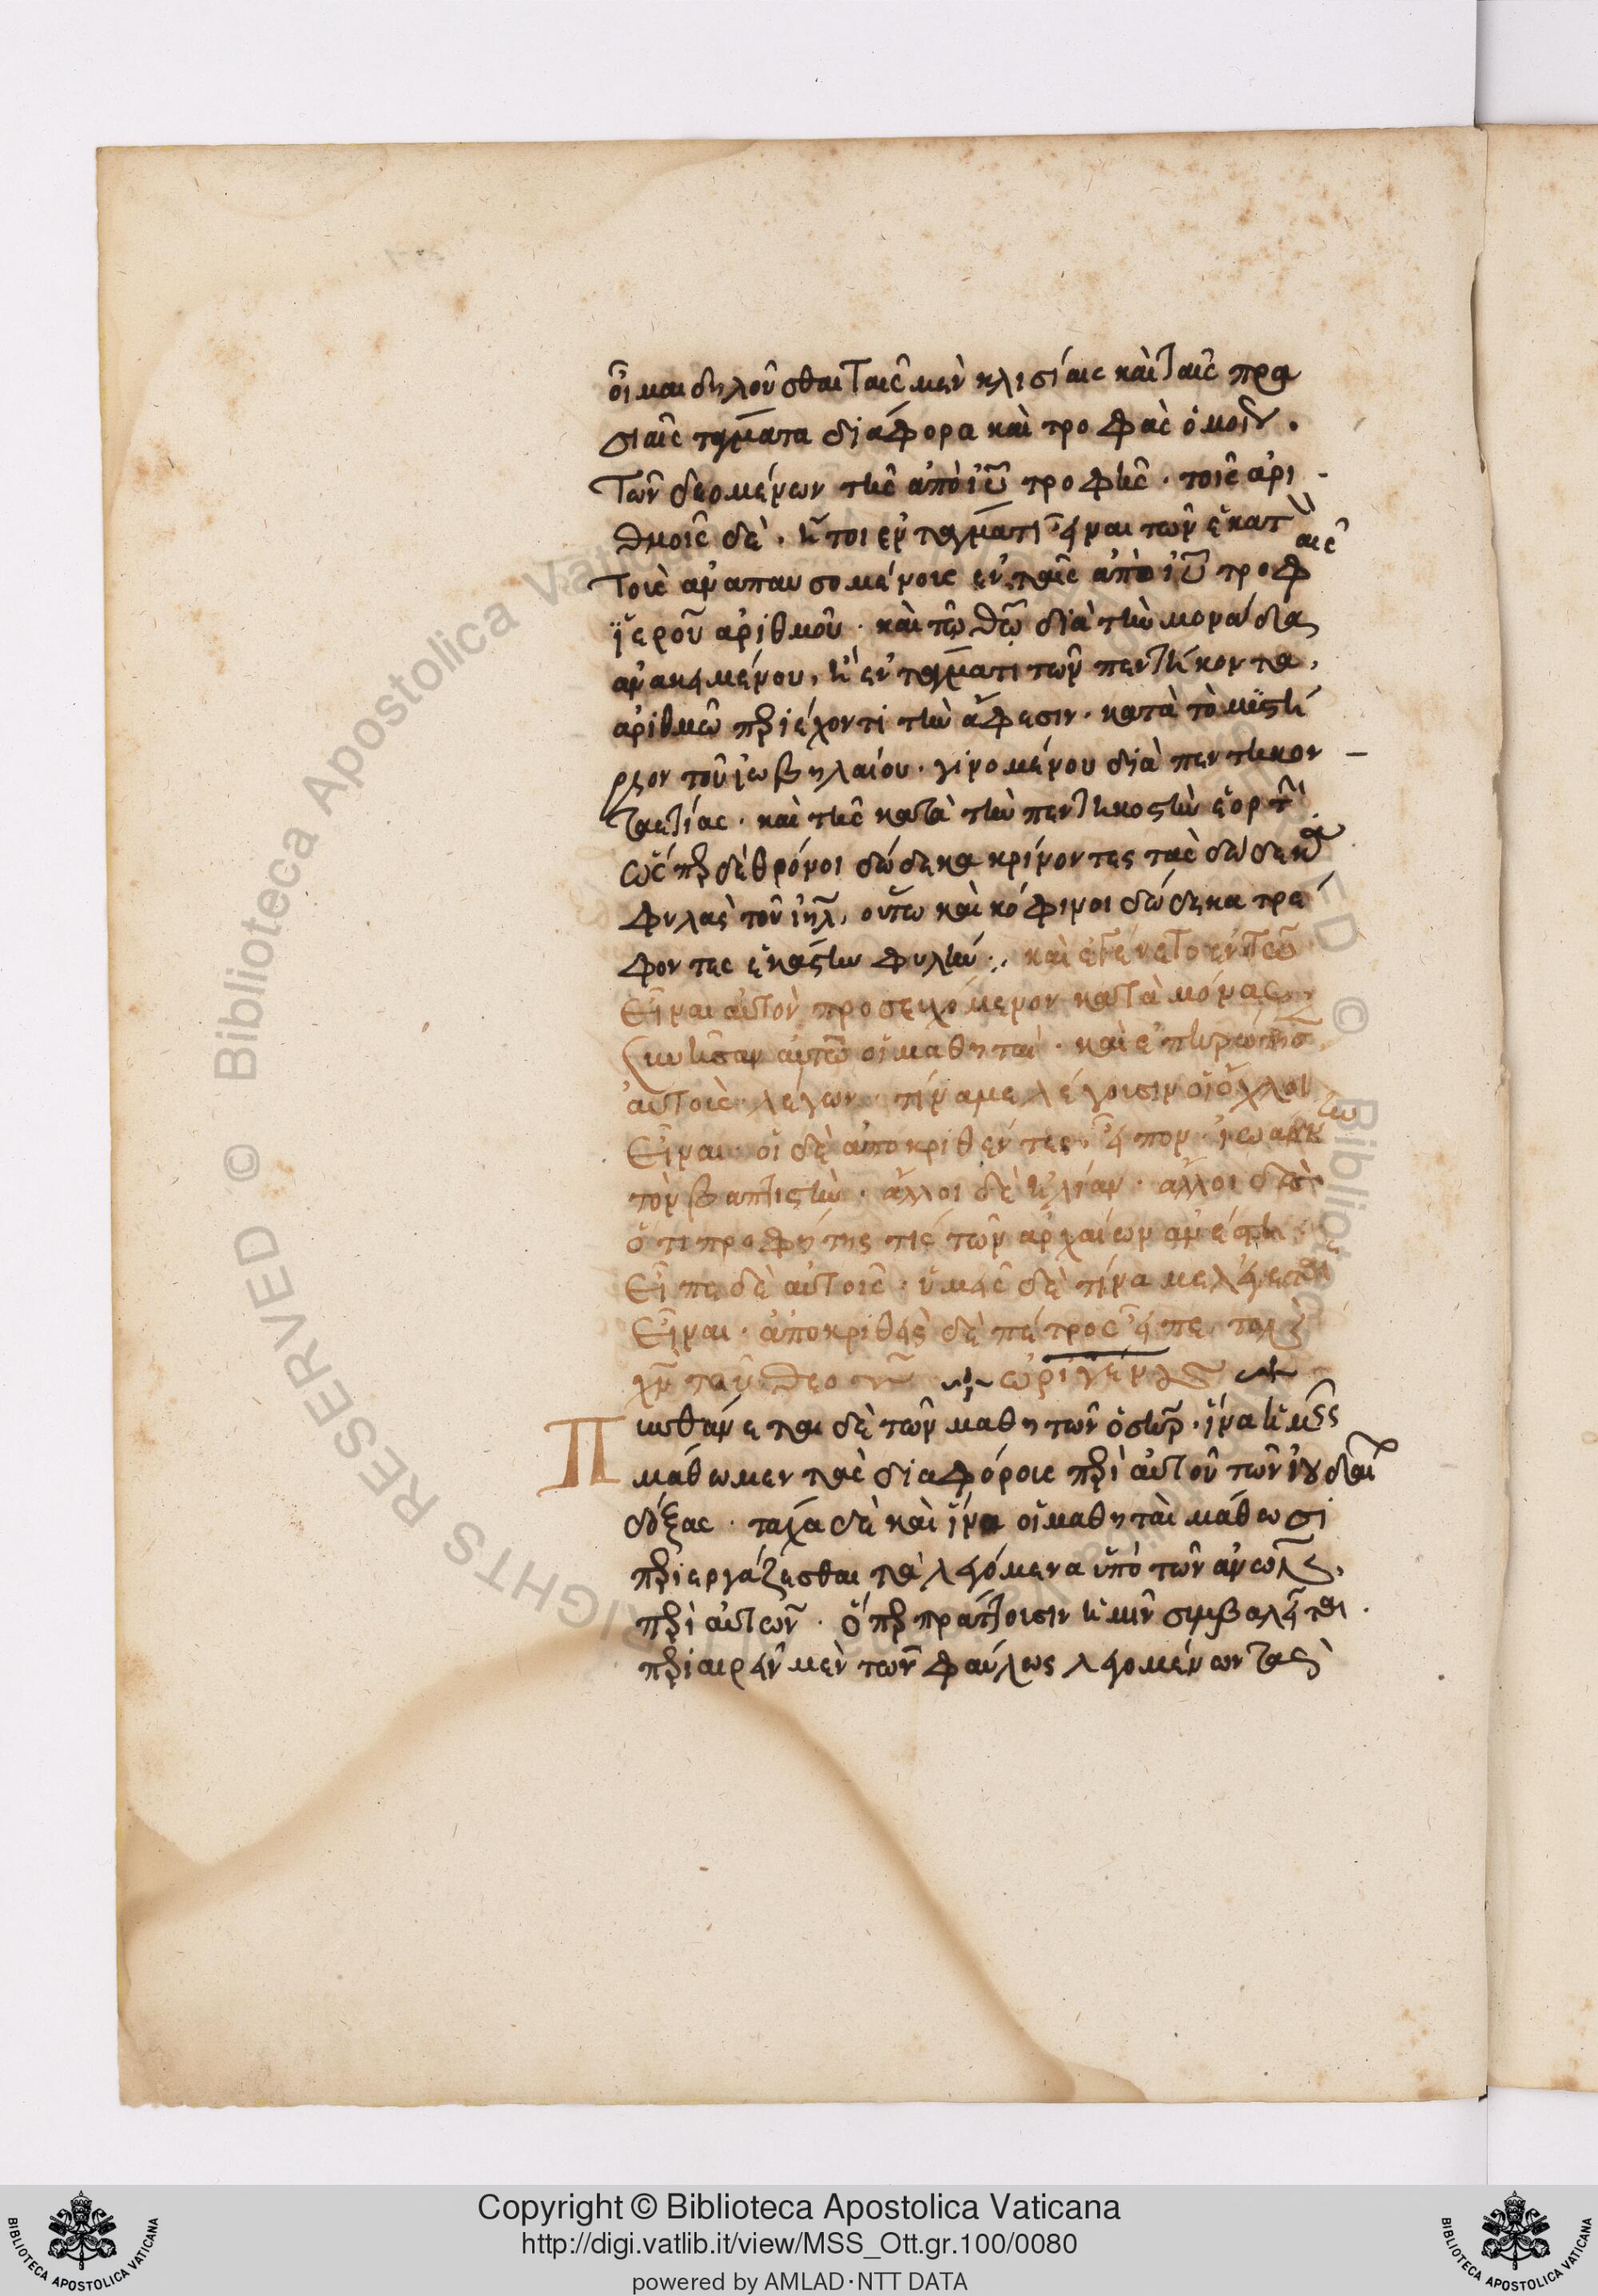 οἶμαι δηλοῦσθαι ταῖς μὲν κλισίαις καὶ ταῖς πρα
σιαῖς τάγματα διάφορα καὶ τροφὰς ὁμοί
τῶν δεομένων τῆς ἀπὸ ἰυ τροφῆς · τοῖς ἀρι-
θμοῖς δὲ · ἤτοι ἐν τάγματι εἶναι τῶν ἑκατὸ
τοῖς ἀναπαυσομένοις ἐν ταῖς ἀπὸ ἰυ τροφαῖς
ἱεροῦ ἀριθμοῦ · καὶ τῷ θῶ διὰ τὴν μονάδα
ἀνακειμένου, ἢ ἐν τάγματι τῶν πεντήκοντα,
ἀριθμῶ περιέχοντι τὴν ἄφεσιν · κατὰ τὸ μυστή
ριον τοῦ ἰωβηλαίου · γινομένου διὰ πεντηκον-
ταετίας · καὶ τῆς κατὰ τὴν πεντηκοστὴν ἑορτ
ὥσπερ δὲ θρόνοι δώδεκα κρίνοντες τὰς δώδεκα
φυλὰς τοῦ ἰηλ, οὕτω καὶ κόφινοι δώδεκα τρέ
φοντες ἑκάστην φυλήν ·. καὶ ἐγένετο ἐν τῶ
εἶναι αὐτὸν προσευχόμενον κατὰ μόνας,
συνῆσαν αὐτῶ οἱ μαθηταί · καὶ ἐπηρώτησ
αὐτοὺς λέγων · τίνα με λέγουσιν οἱ ὄχλοι
εἶναι · οἱ δὲ ἀποκριθέντες εἶπον · ἰωάννην
τὸν βαπτιστὴν · ἄλλοι δὲ ἠλίαν · ἄλλοι δὲ
ὅτι προφήτης τὶς τῶν ἀρχαίων ἀνέστη
εἶπε δὲ αὐτοῖς · ὑμεῖς δὲ τίνα με λέγετε
εἶναι · ἀποκριθεὶς δὲ πέτρος εἶπε τὸν
χν τοῦ θεοῦ ὠριγένους
Πυνθάνεται δὲ τῶν μαθητῶν ὁ σωρ · ἵνα ἡμεῖς
μάθωμεν τὰς διαφόρους περὶ αὐτοῦ τῶν ἰουδαί
δόξας · τάχα δὲ καὶ ἵνα οἱ μαθηταὶ μάθωσι
περιεργάζεσθαι τὰ λεγόμενα ὑπὸ τῶν ανων,
περὶ αὐτῶν · ὅπερ πράττουσιν ἡμῖν συμβαλεῖται ·
περιαιρεῖν μὲν τῶν φαύλως λεγομένων τὰς
Copyright © Biblioteca Apostolica Vaticana
http://digi.vatlib.it/view/MSS_Ott.gr.100/0080
powered by AMLAD·NTT DATA